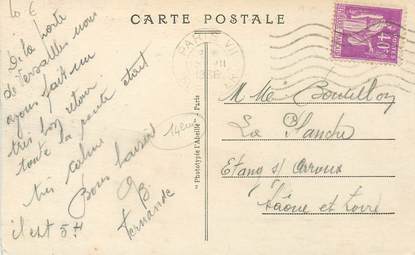 10 €
CARTE POSTALE
De la porte
de Versailles nous
avons fait un
très bon retour.
toute la route était
très calme
Bons baisers
Fernande
il est 5 H
140
"Phototypie l'Abeille", Paris
PARIS VII
1936
40c
M Mme Bouillon
La Planche
Etang s/ Arroux
Saône et Loire